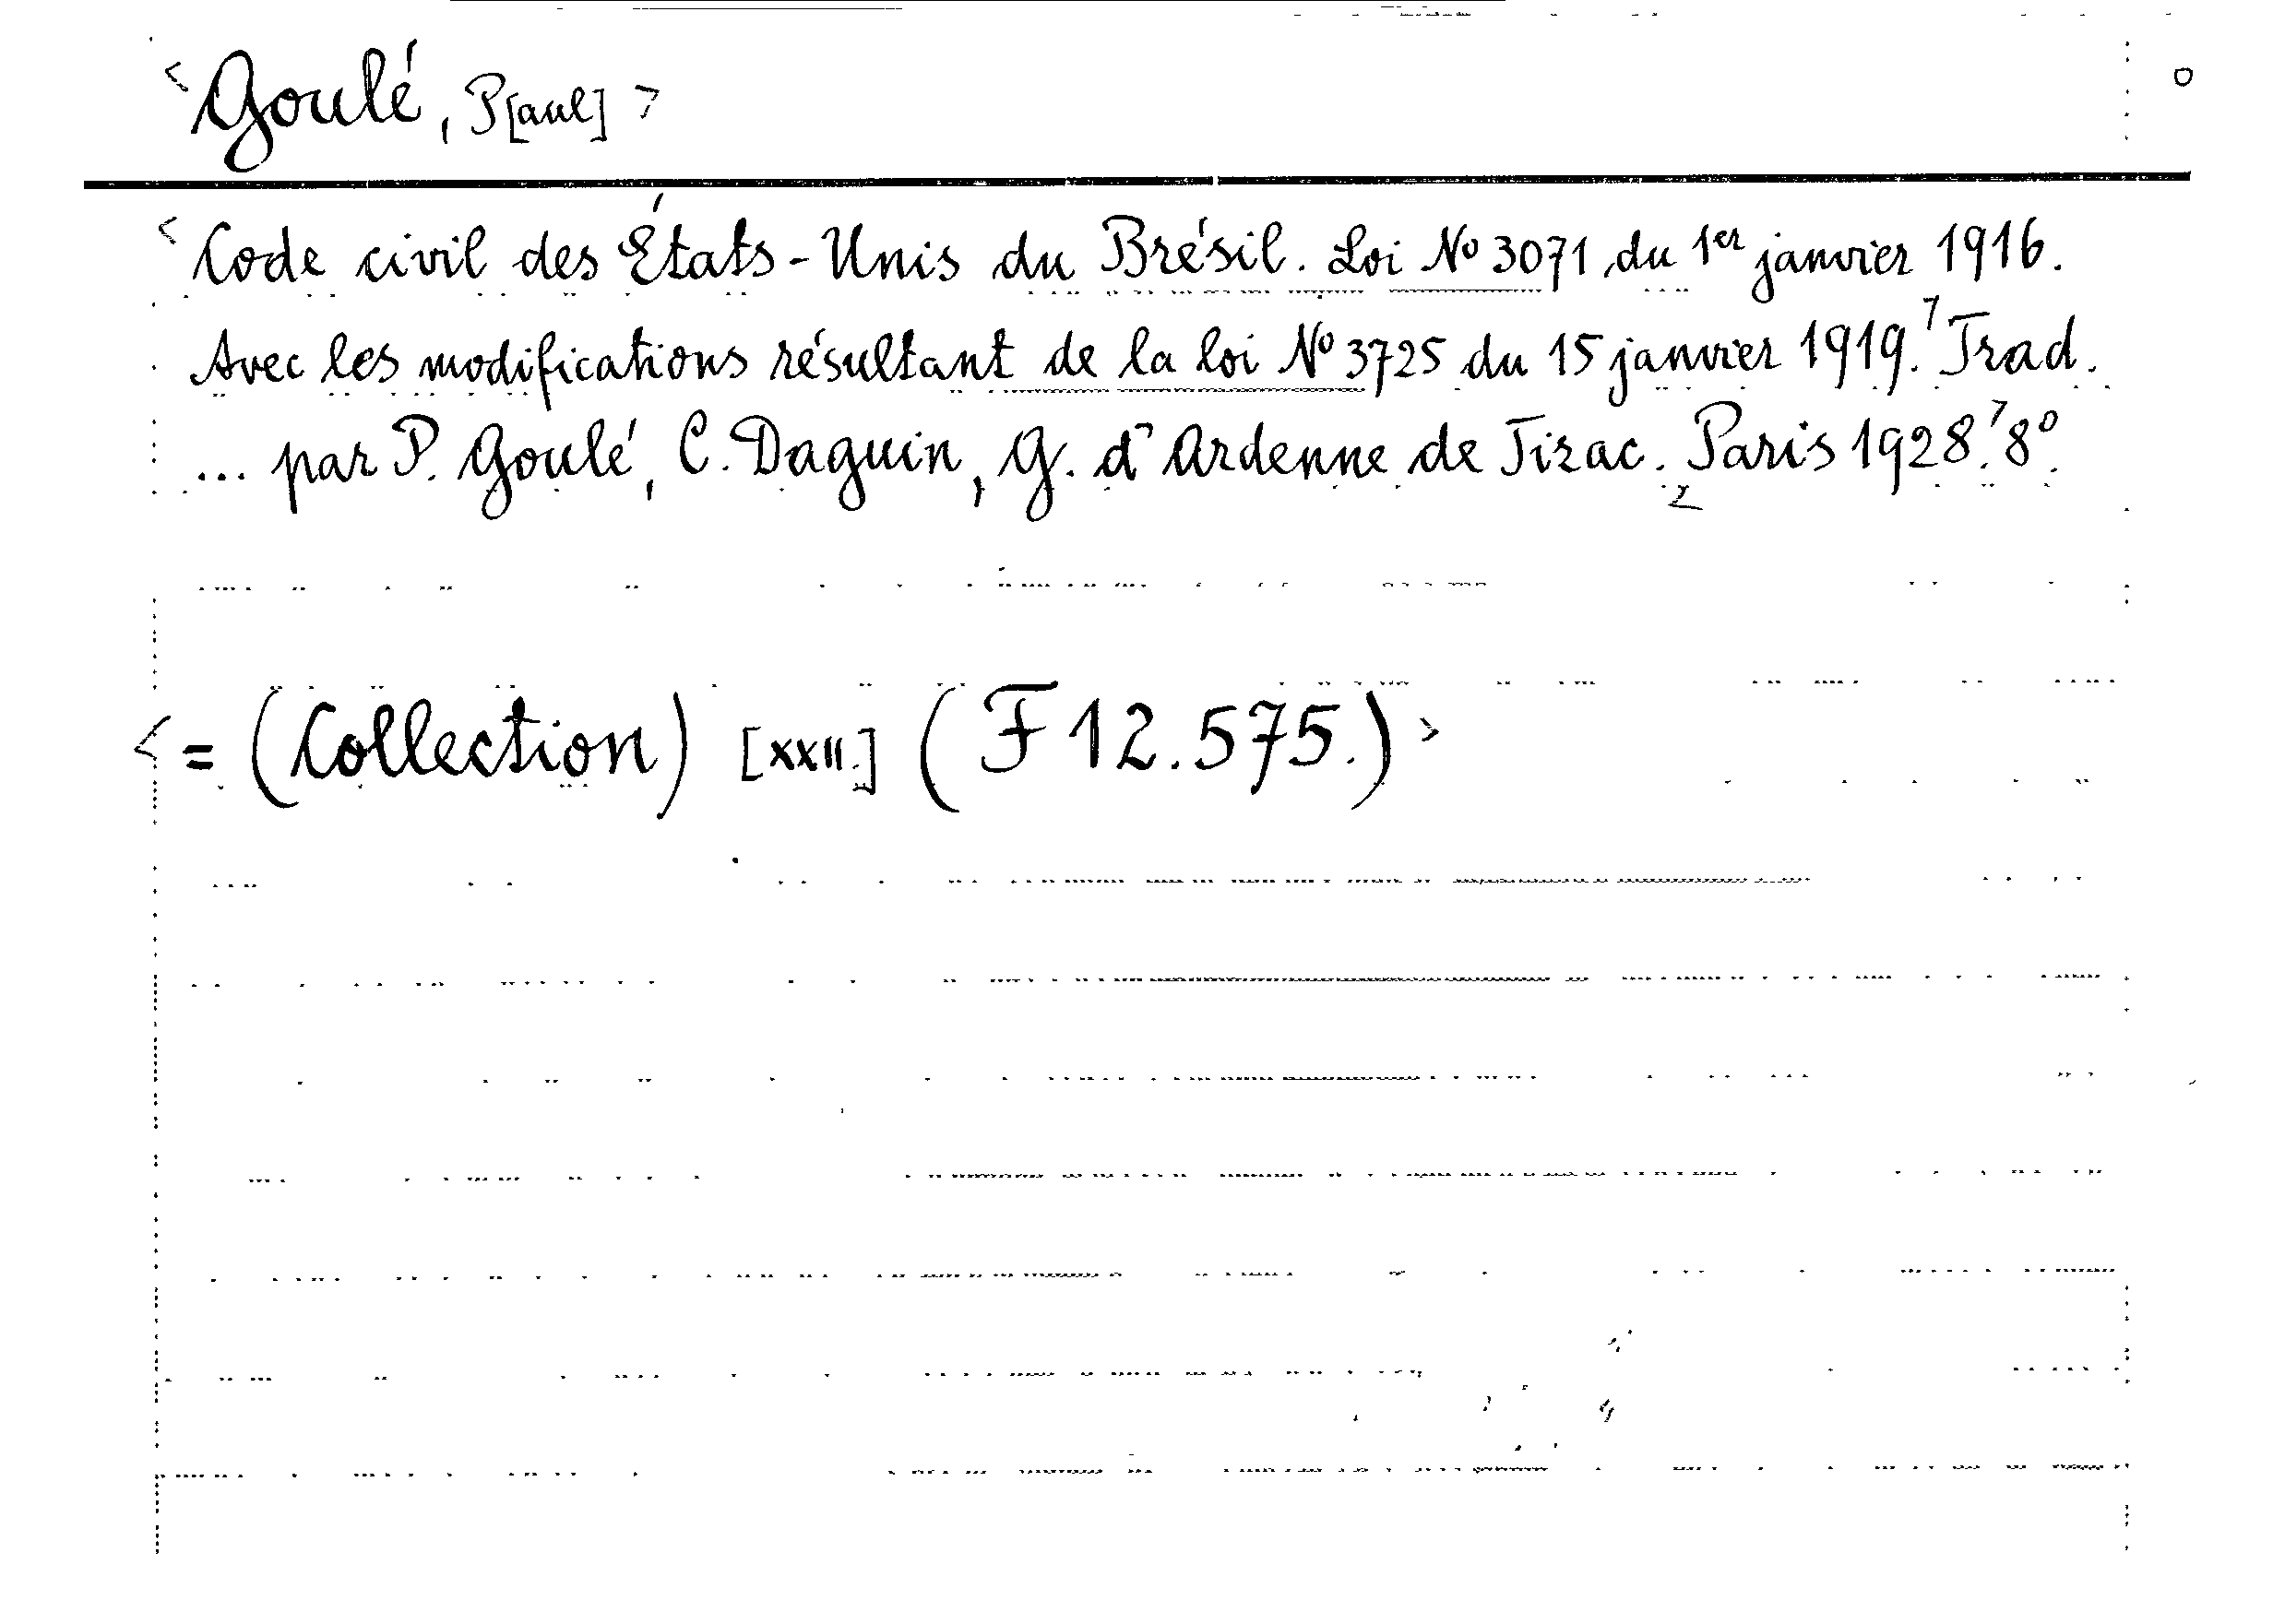 <Goulé, P[aul]>
<Code civil des États-Unis du Brésil. Loi No 3071 du 1er janvier 1916.
Avec les modifications résultant de la loi No 3725 du 15 janvier 1919.> Trad.
... par P. Goulé, C. Daguin, G. d'Ardenne de Tizac. <Paris 1928.> 8o.
<= (Collection) [XXII.] (F 12.575.)>